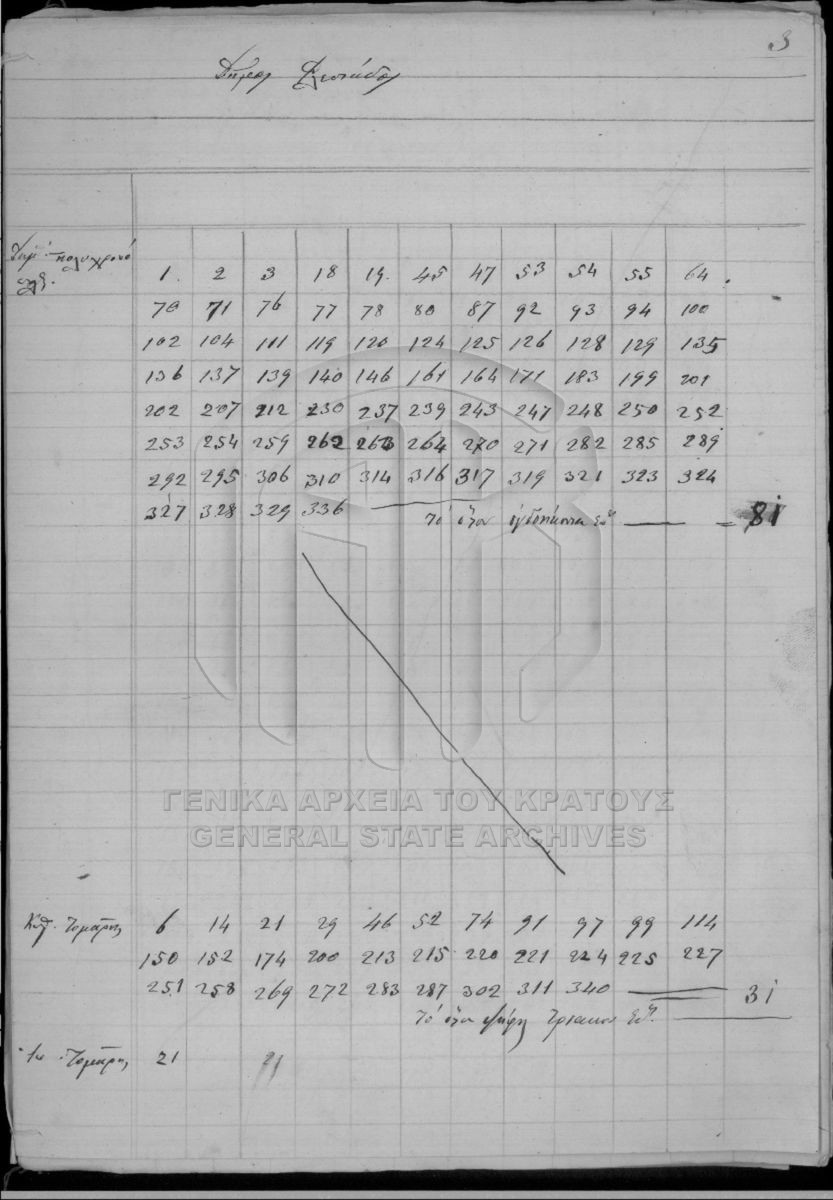 3
Δήμος
Δημ. Πολυχρονό
1 2 3 18 19 45 47 53 54 55 64
πουλος
70 71 76 77 78 80 87 92 93 94 100
102 104 111 119 120 124 125 126 128 129 135
136 137 139 140 146 161 164 171 183 199 201
202 207 212 230 237 239 243 247 248 250 252
253 254 259 262 263 264 270 271 282 285 289
292 295 306 310 314 316 317 319 321 323 324
327 328 329 336 τό όλον ογδοήκοντα έν 81
ΓΕΝΙΚΑ ΑΡΧΕΙΑ ΤΟΥ ΚΡΑΤΟΥΣ
GENERAL STATE ARCHIVES
Τομαρης 6 14 21 29 46 52 74 91 97 99 114
150 152 174 200 213 215 220 221 224 225 227
251 258 269 272 283 287 302 311 340 31
τό όλον ψήφοι τριακον έν
Ιω. Τομαρης 21